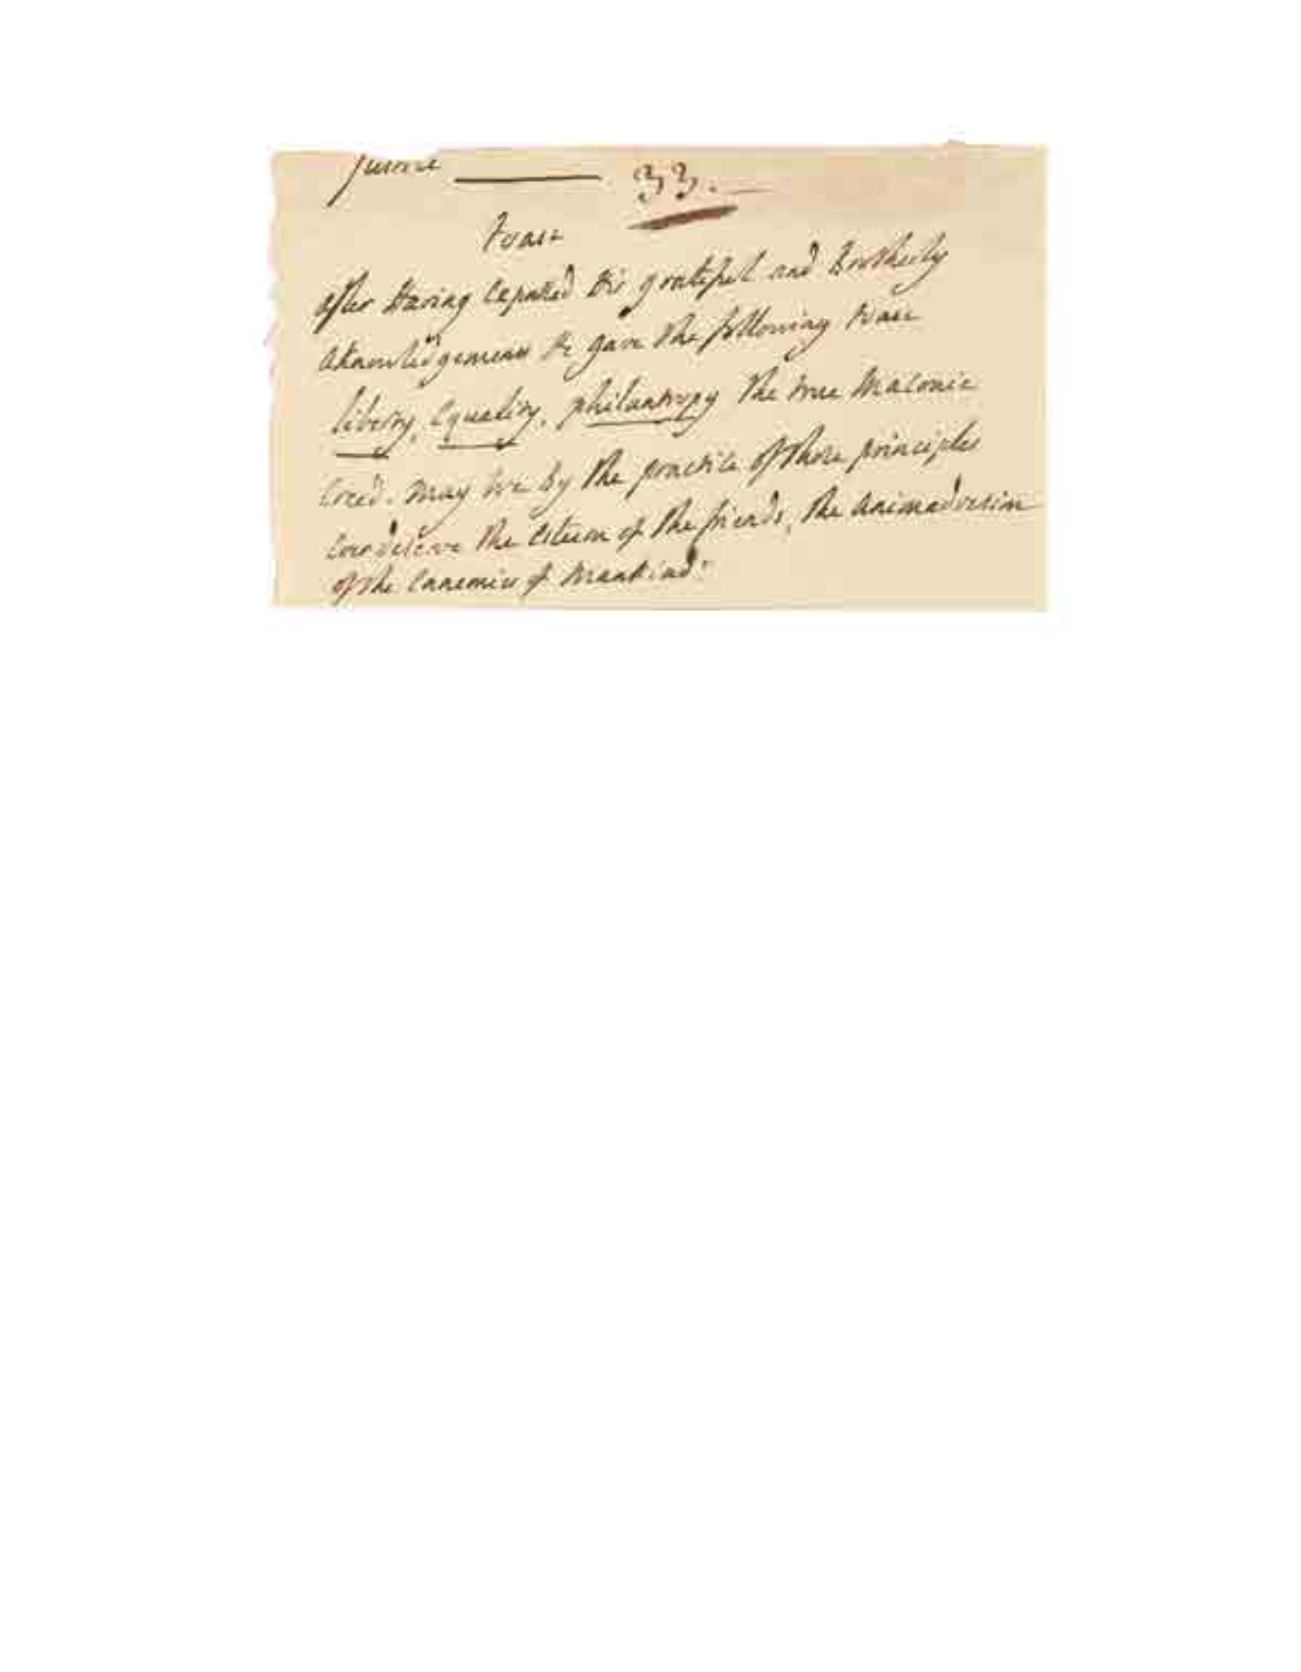 33.
Toast
after having expressed his grateful and Brotherly
aknowledgement he gave the following toast
liberty, Equality, philantropy the true Masonic
Creed. may we by the practice of those principles
ever deserve the esteem of the friends, the animadvesion
of the Ennemies of Mankind!